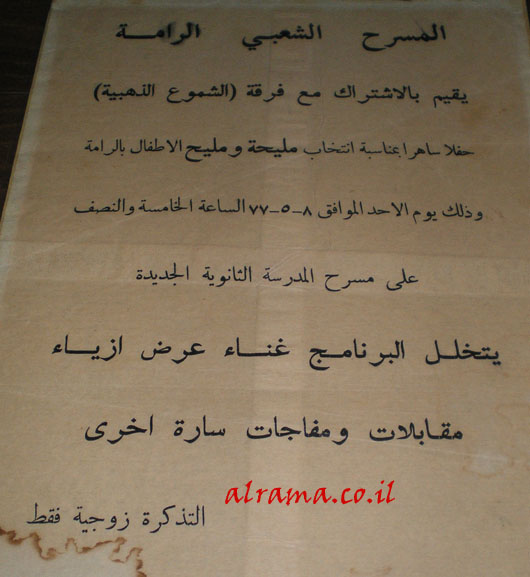 المسرح الشعبي الرامة
يقيم بالاشتراك مع فرقة (الشموع الذهبية)
حفلا ساهرا بمناسبة انتخاب مليحة ومليح الاطفال بالرامة
وذلك يوم الاحد الموافق ٨-٥-٧٧ الساعة الخامسة والنصف
على مسرح المدرسة الثانوية الجديدة
يتخلل البرنامج غناء عرض ازياء
مقابلات ومفاجات سارة اخرى
alrama.co.il
التذكرة زوجية فقط